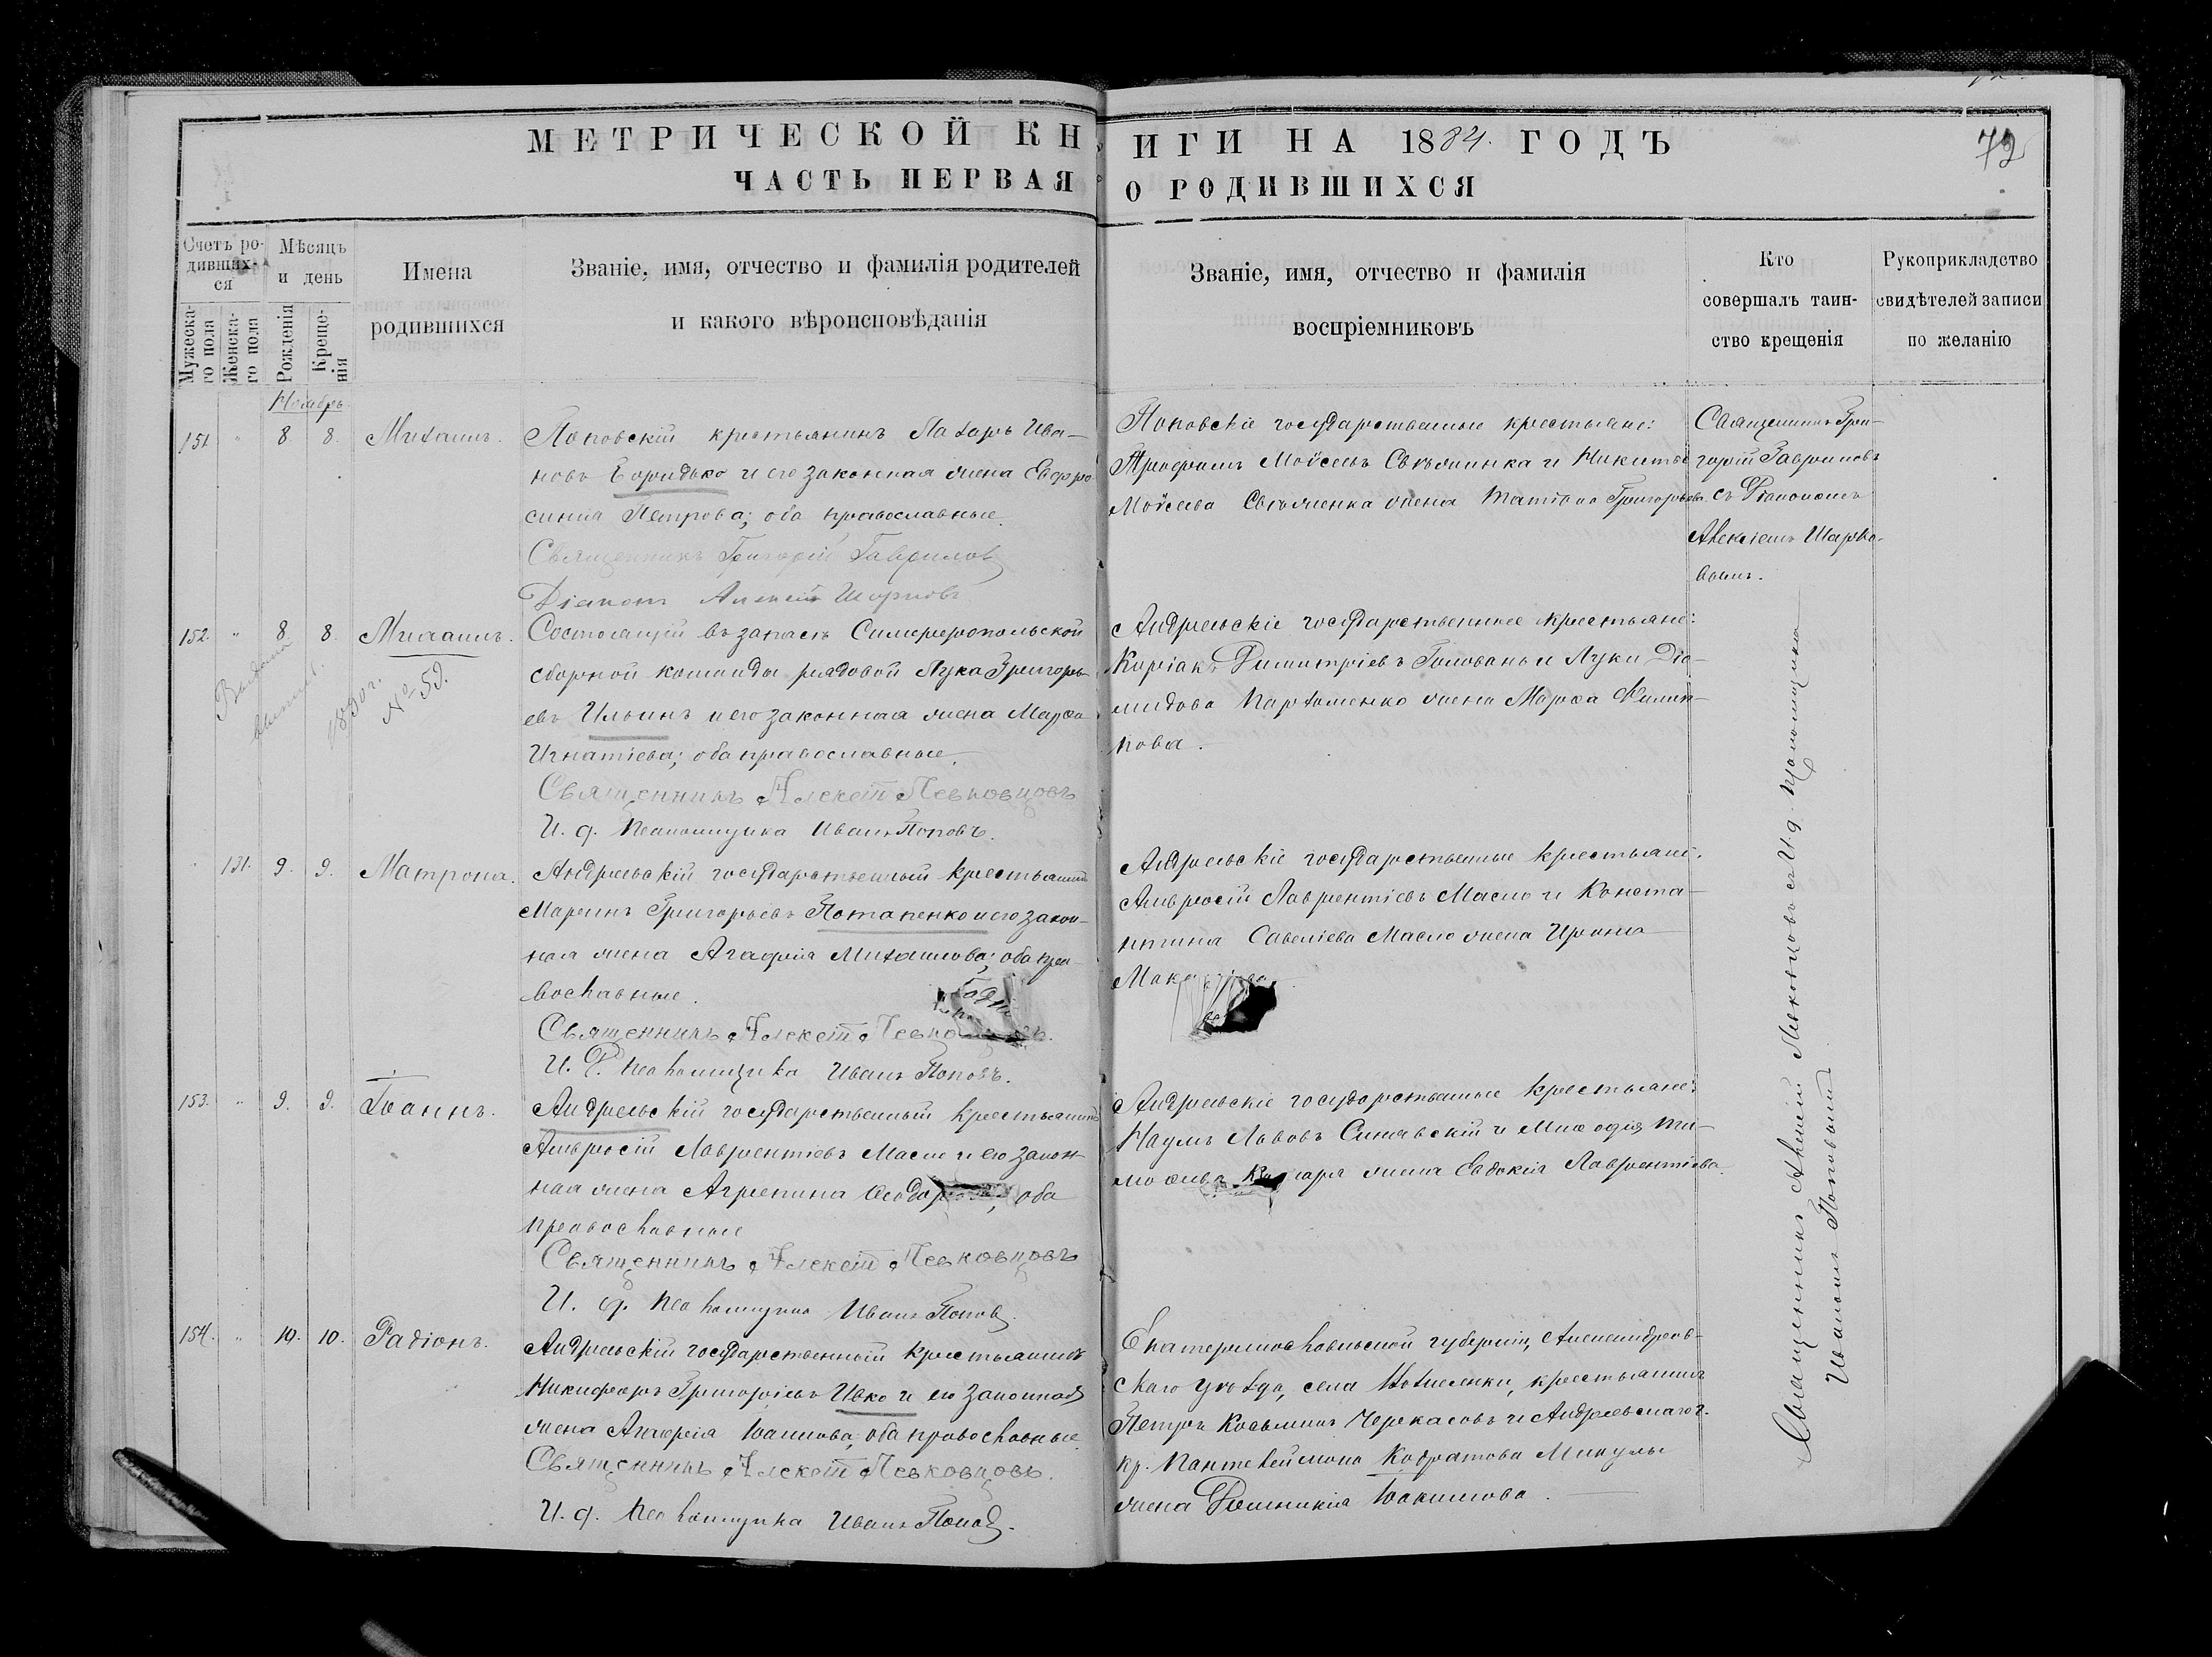 МЕТРИЧЕСКОЙ КНИГИ НА 1884. ГОДЪ
72
ЧАСТЬ ПЕРВАЯ О РОДИВШИХСЯ
Счетъ ро-
дивших-
ся
Мужеска-
го пола
Женска-
го пола
Мѣсяцъ
и день
Рожденія
Креще-
нія
Имена
родившихся
Званіе, имя, отчество и фамилія родителей
и какого вѣроисповѣданія
Званіе, имя, отчество и фамилія
воспріемниковъ
Кто
совершалъ таин-
ство крещенія
Рукоприкладство
свидѣтелей записи
по желанію
Ноябрь
151 " 8 8. Михаилъ.
Поповскій крестьянинъ Захаръ Ива-
новъ и его законная жена Евфро-
синія Петрова; оба православные.
Священникъ Григорій Гаврилов
Діаконъ Алексій
Поповскіе государственные крестьяне:
Трофимъ Моѵсеевъ и Никиты
Моѵсеева жена Татіана Григорьева
Священникъ Гри-
горій Гавриловъ
съ Діакономъ
Алексіемъ
152. " 8 8. Михаилъ.
Выдана
1890 г.
№ 59.
Состоящій въ запасѣ Симферопольской
сборной команды рядовой Лука Григорь-
евъ Ильинъ и его законная жена Марѳа
Игнатіева; оба православные.
Священникъ Алексій Левковцовъ
И. д. Псаломщика Иванъ Поповъ.
Андреевскіе государственные крестьяне:
Киріакъ Димитріевъ Головань и Луки Діо-
мидова Пархоменко жена Марѳа Филип-
пова.
131. 9. 9. Матрона.
Андреевскій государственный крестьянинъ
Григорьевъ Потапенко и его закон-
ная жена Агафія Михаилова; оба пра-
вославные.
Священникъ Алексій
И. д. Псаломщика Иванъ Поповъ.
Андреевскіе государственные крестьяне:
Амвросій Лаврентіевъ Масло и Конста-
нтина Савеліева Масло жена Ирина
153. " 9. 9. Іоаннъ.
Андреевскій государственный крестьянинъ
Амвросій Лаврентіевъ Масло и его закон-
ная жена Агрепина оба
православные
Священникъ Алексій Левковцовъ
И. д. Псаломщика Иванъ Попов
Андреевскіе государственные крестьяне:
Наумъ Львовъ Синявскій и Меѳодія Ти-
жена Евдокія Лаврентіева
154. " 10. 10. Радіонъ.
Андреевскій государственный крестьянинъ
Никифоръ Григорьевъ Ивко и его законная
жена Іоаннова; оба православные.
Священникъ Алексій Левковцовъ.
И. д. Псаломщика Иванъ Попов.
Екатеринославской губерніи, Александров-
скаго уѣзда, села крестьянинъ
Петръ Косьминъ Черкасовъ и Андреевскаго г.
кр. Пантелеймона Кодратова Микулы
жена Домникія Іоакимова.
Священникъ Алексій Левковцовъ съ И. д. Псаломщика
Иваномъ Поповымъ